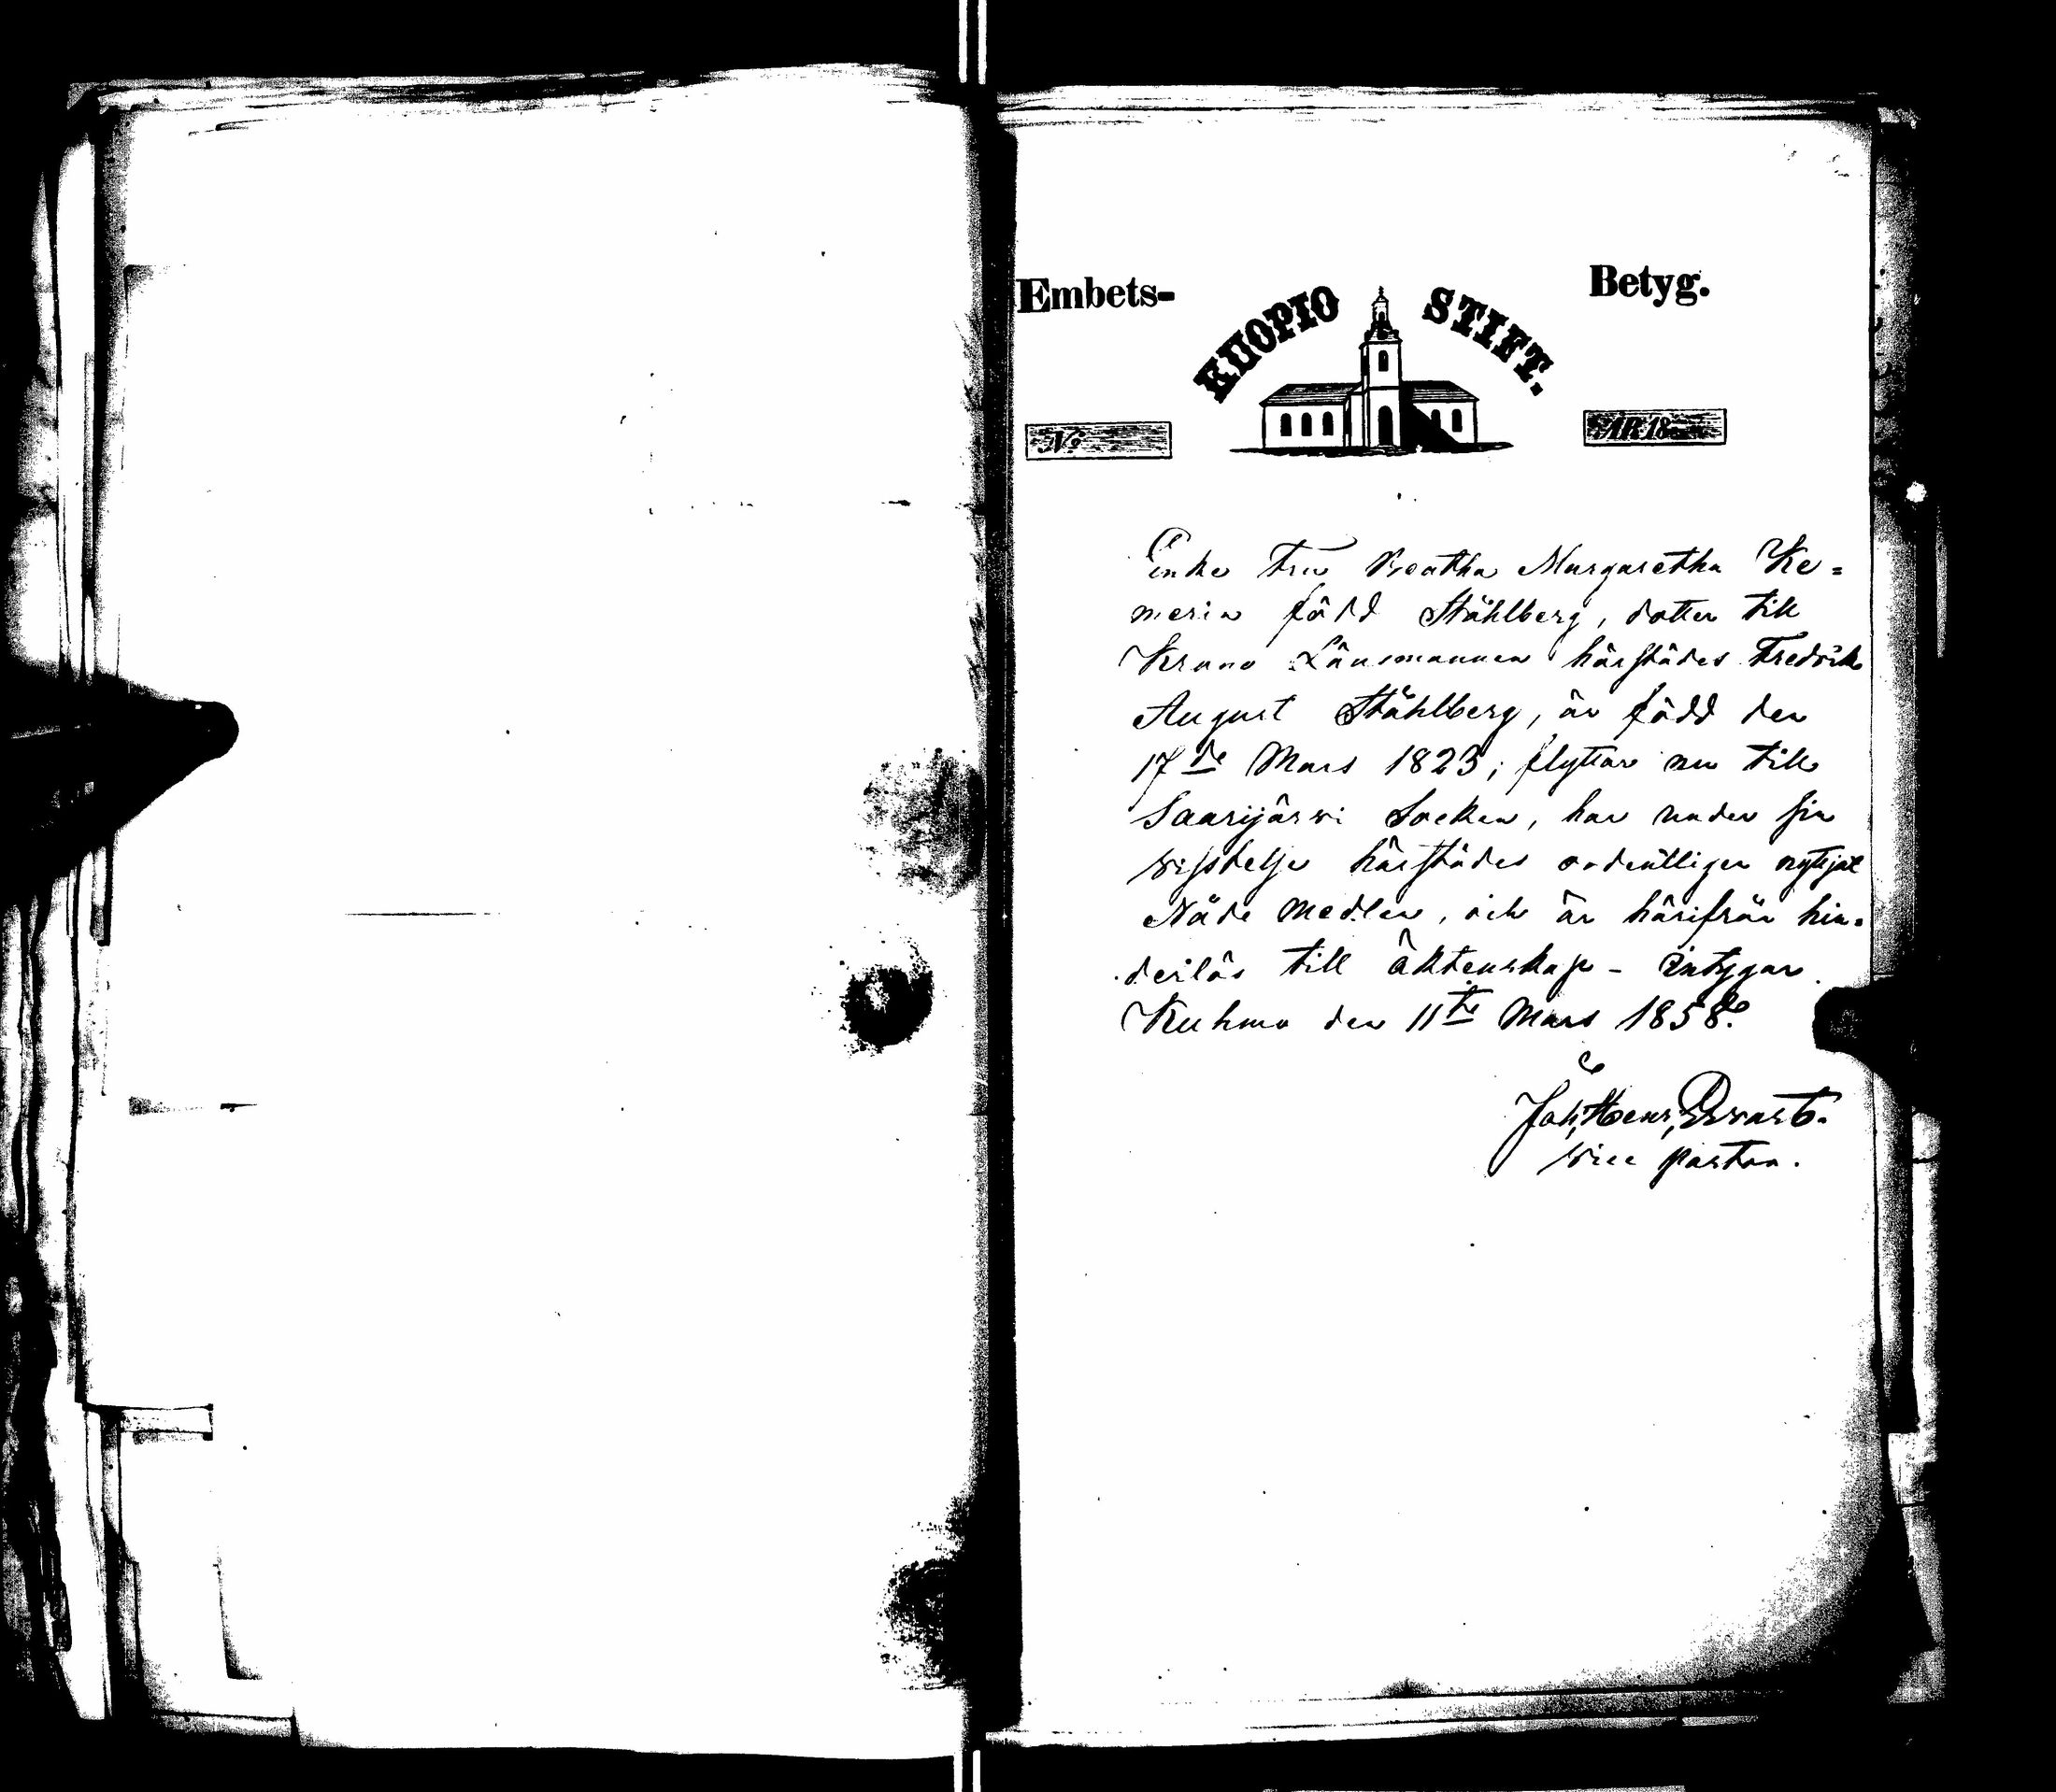 Embets- Betyg.
KUOPIO STIFT.
No ÅR 18
Enke Fru Beatha Margaretha Ke=
meria född Ståhlberg, dotter till
Krono Länsmannen härstädes Fredrik
August Ståhlberg, är född den
17de Mars 1823; flyttar nu till
Saarijärvi Socken, har under sin
vistelse härstädes ordentligen nyttjat
Nåde medlen, och är härifrån hin=
derlös till äktenskap - intygar
Kuhmo den 11te Mars 1858.
Joh, Henr,
vice pastor.